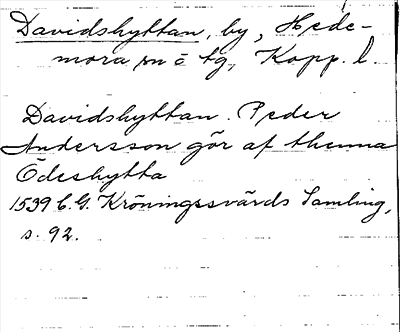 Davidshyttan, by, Hede-
mora sn o tg, Kopp. l.
Davidshyttan. Peder
Andersson gör af thenna
Ödeshytta
1539 C.G. Kröningssvärds Samling,
s. 92.